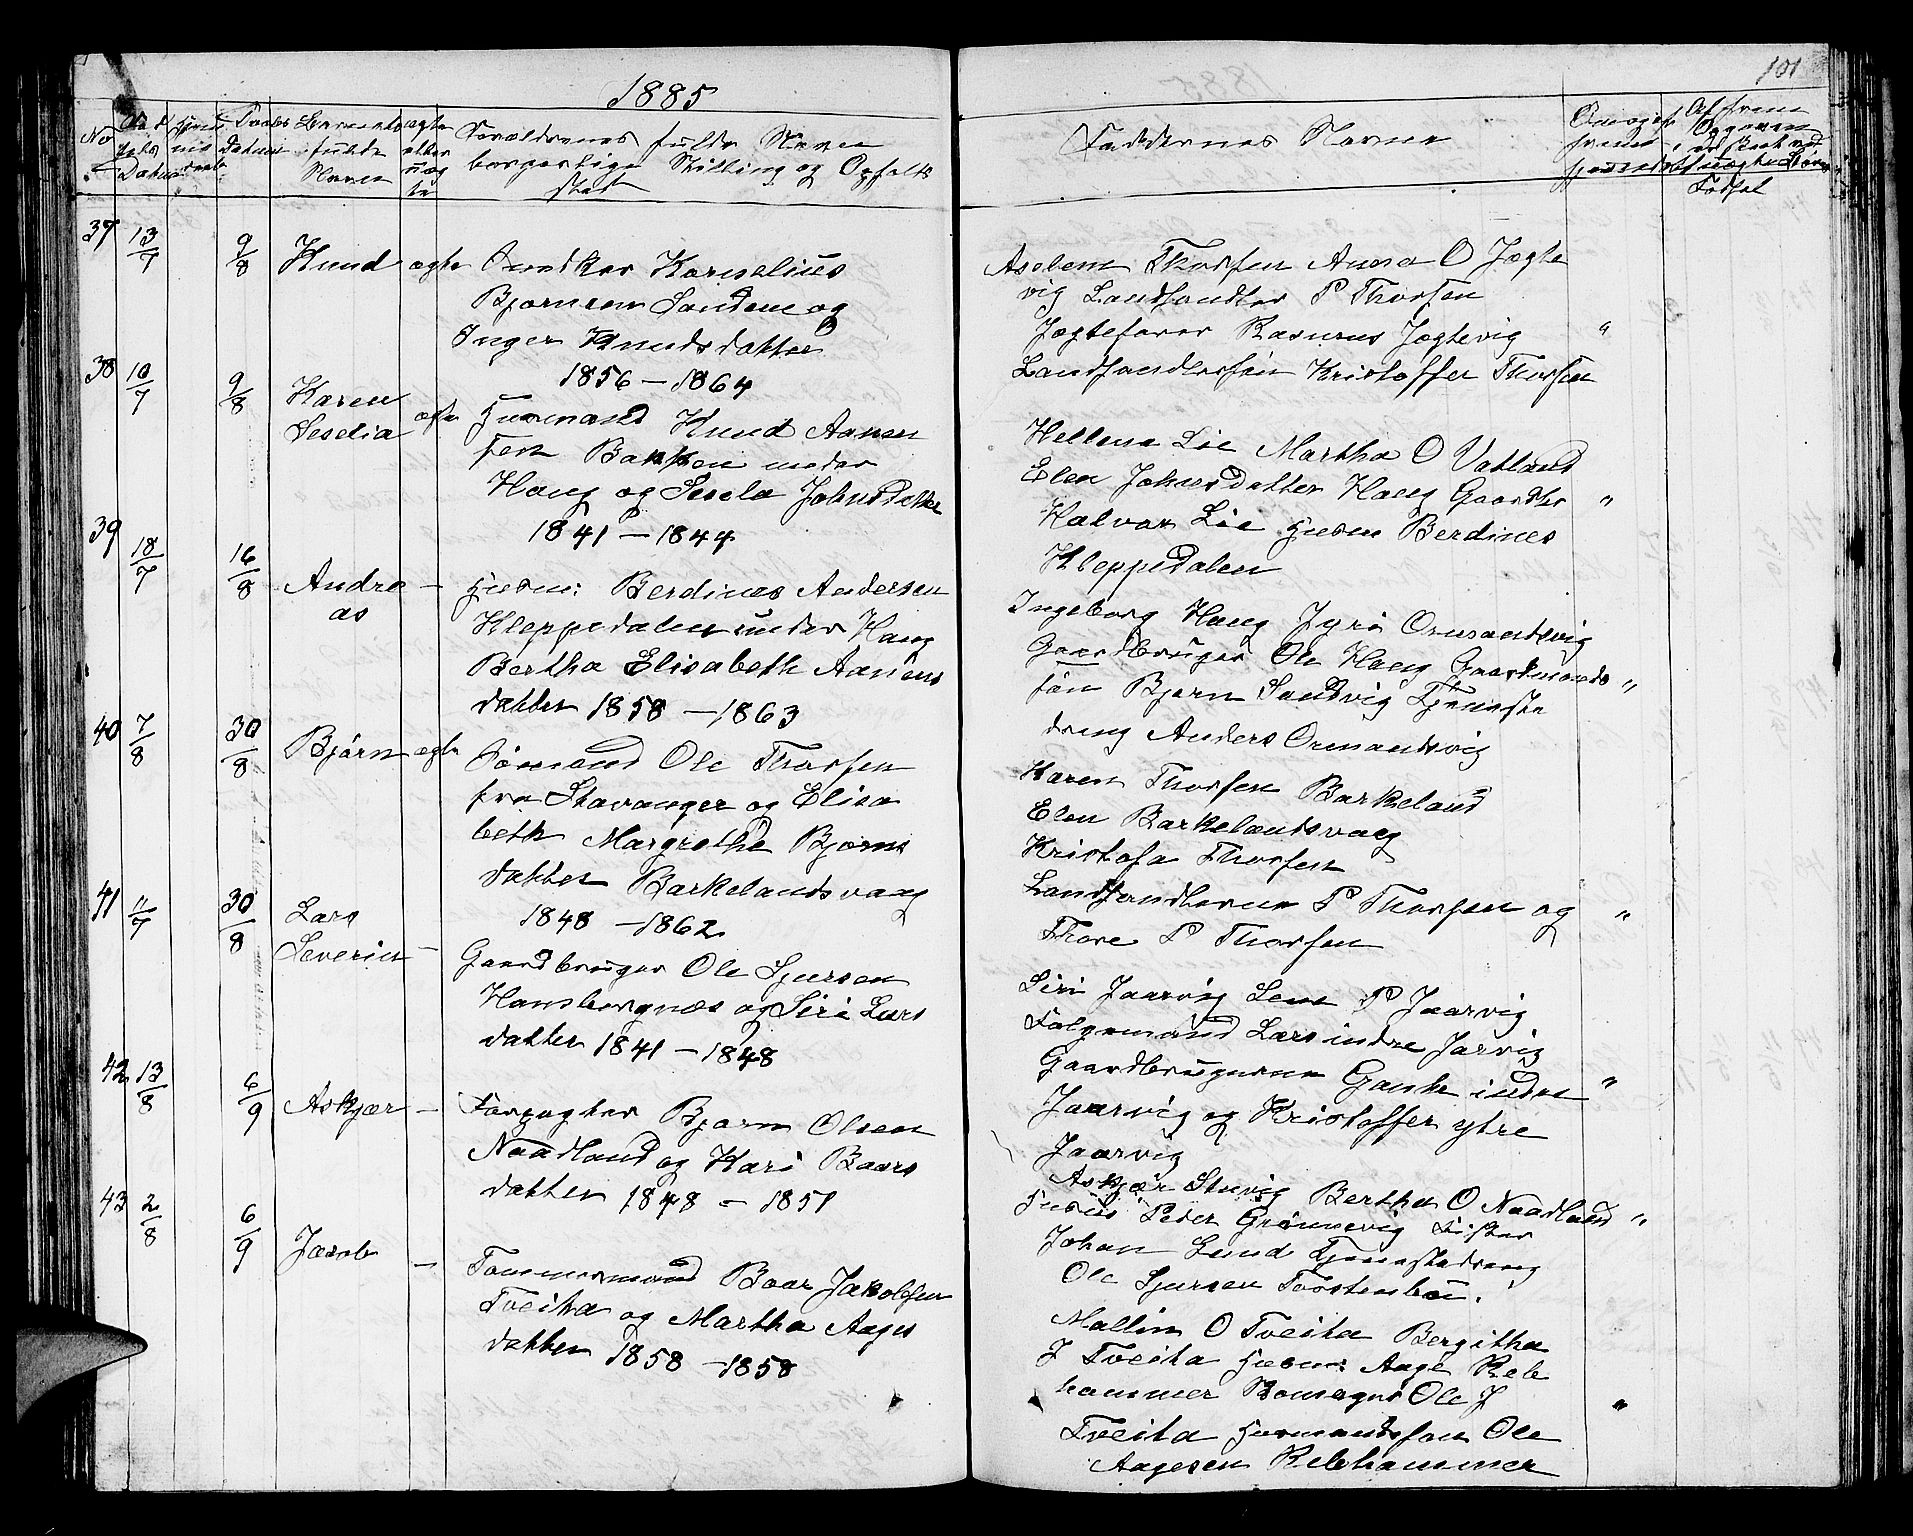 1885
101
No
Datum
Datum
Barnets
fulde
Navn
ægte
eller
uæg
te
Forældrenes fulde Navn
borgerlige Stilling og Opholds
sted
Faddernes Navne
Fødsel
37 13/7 9/8 Knud ægte Kornelius
Bjørnsen Sandem og
Inger Knudsdatter
1856 – 1864
38 10/7 9/8 Karen
Seselia ægte Husmand Knud Aanen
sen Bakken under
Haug og Sesela Johnsdatter
1841 – 1844
39 18/7 16/8 Andre
as – Husm: Berdines Andersen
Kleppedalen under Haug
Bertha Elisabeth Aanens
datter 1858 – 1863
40 7/8 30/8 Bjørn ægte Sömand Ole Thorsen
fra Stavanger og Elisa
beth Margrethe Bjørns
datter Barkelandsvaag
1848 – 1862
41 11/7 30/8 Lars
Severin – Gaardbruger Ole Sjursen
Hansborgnæs og Siri Lars
datter 1841 – 1848
42 13/8 6/9 Askjær – Forpagter Bjørn Olsen
Naadland og Kari Baars
datter 1848 – 1851
43 2/8 6/9 Jacob – Tømmermand Baar Jakobsen
Tveita og Martha Aages
datter 1858 – 1858
Thorsen Anna O Jøgte
vig Landhandler P Thorsen
Jøgtefører Rasmus Jøgtevig "
Landhandlersøn Kristoffer Thorsen
Hellena Lie Martha O Vatland
Elen Johnsdatter Haug Gaardbr "
Halvor Lie Husm Berdines
Kleppedalen
Ingeborg Haug Jyri Ormandsvig
Gaardbruger Ole Haug Gaardmands "
søn Bjørn Sandvig Tjeneste
dreng Anders Ormandsvig
Karen Thorsen Barkeland
Elen Barkelandsvaag
Kristofa Thorsen
Landhandlerne P Thorsen og "
Thore P Thorsen
Siri Jaarvig Lene P Jaarvig
Folgemand Lars indre Jarvig
Gaardbrugerne Gaute indre "
Jaarvig og Kristoffer ytre
Jaarvig
Askjær Stuvig Bertha O Naadland "
Peder Grönnevig Fisker
Johan Lund Tjenestedreng
Ole Sjursen Torstenbø.
Mallin O Tveita Bergitha
J Tveita Husm: Aage Reb
hammer Ole J "
Tveita Husmandssøn Ole
Aagesen Rebhammer